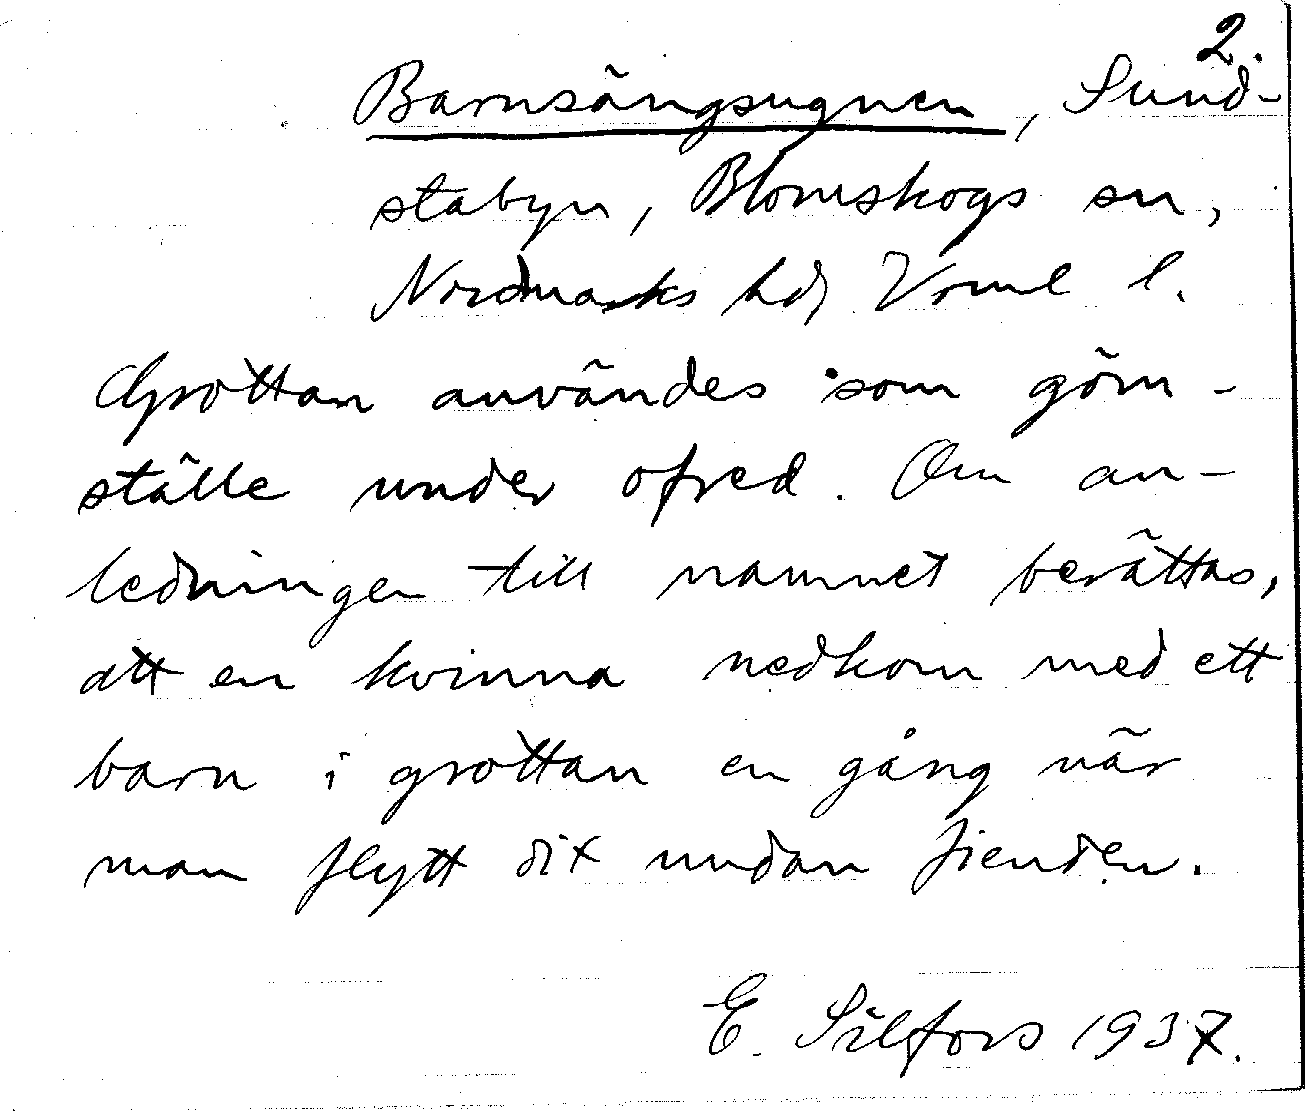 2.
Barnsängsugnen, Sund-
stabyn, Blomskogs sn,
Nordmarks hd, Vrml l.
Grottan användes som göm-
ställe under ofred. Om an-
ledningen till namnet berättas,
att en kvinna nedkom med ett
barn i grottan en gång när
man flytt dit undan fienden.
E. Silfors 1937.